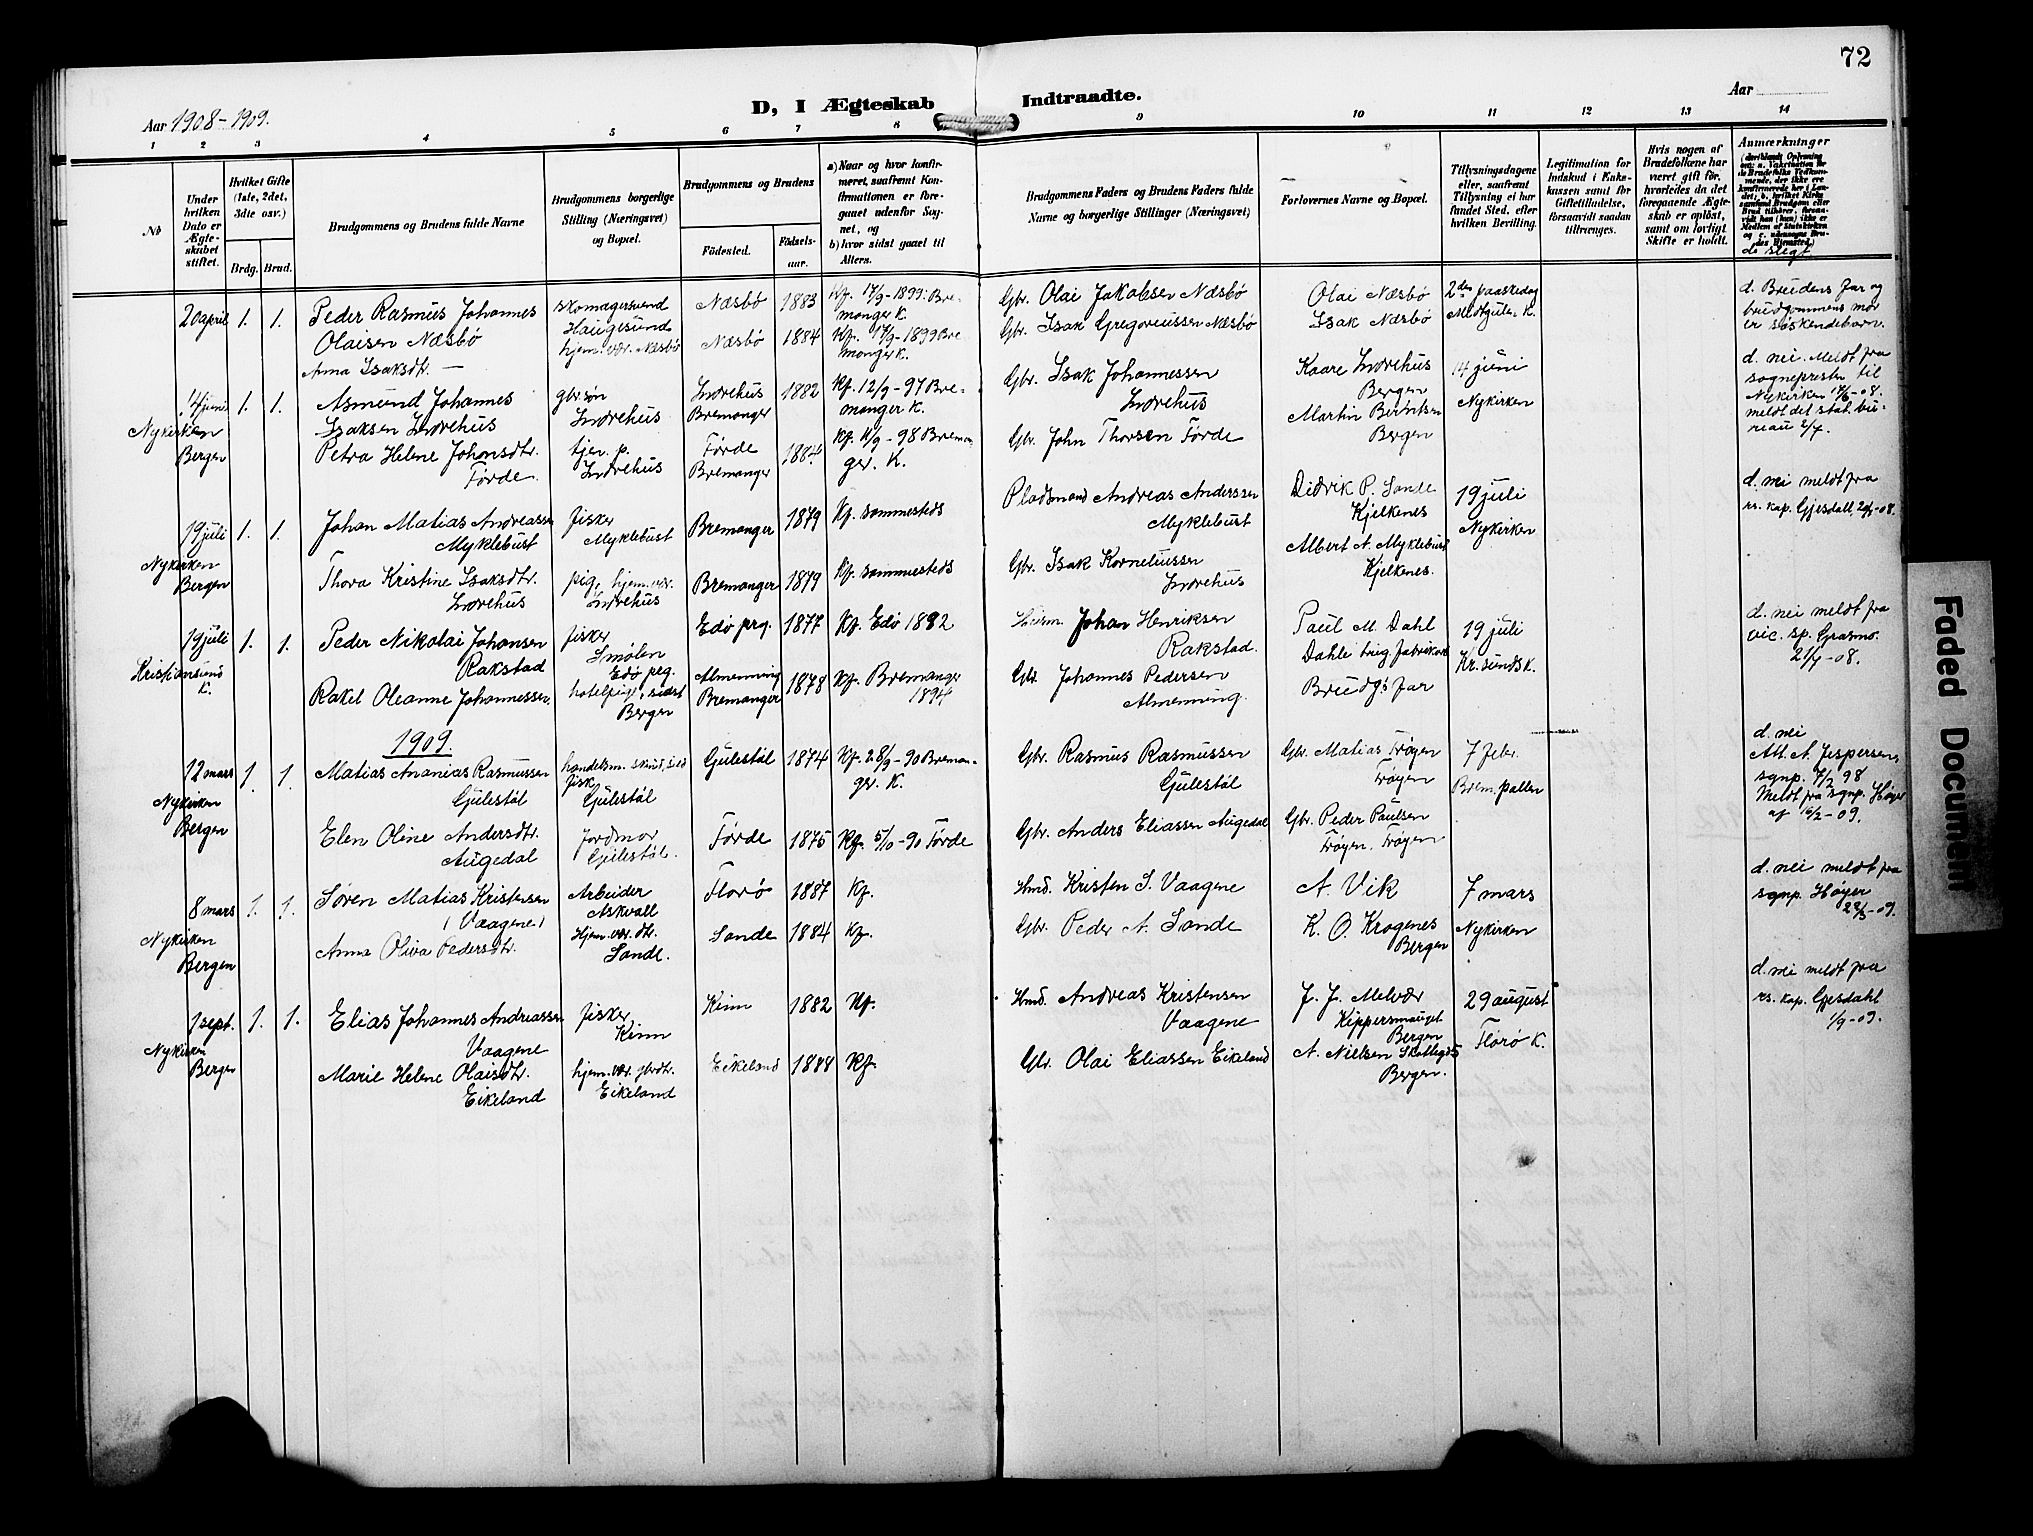 72
D, I Ægteskab Indtraadte.
Aar 1908-1909.
Aar
1 2 3 4 5 6 7 8 9 10 11 12 13 14
No
Under hvilken Dato er Ægteskabet stiftet.
Hvilket Gifte (1ste, 2det, 3dte osv.)
Brdg. Brud.
Brudgommens og Brudens fulde Navne
Brudgommens borgerlige Stilling (Næringsvei) og Bopæl.
Brudgommens og Brudens
Fødested.
Fødselsaar.
a) Naar og hvor konfirmeret, saafremt Konfirmationen er foregaaet udenfor Sognet, og
b) hvor sidst gaaet til Alters.
Brudgommens Faders og Brudens Faders fulde Navne og borgerlige Stillinger (Næringsvei)
Forlovernes Navne og Bopæl.
Tillysningsdagene eller, saafremt Tillysning ei har fundet Sted, efter hvilken Bevilling.
Legitimation for Indskud i Enkekassen samt for Giftetilladelse, forsaavidt saadan tiltrænges.
Hvis nogen af Brudefolkene har været gift før, hvorledes da det foregaaende Ægteskab er opløst, samt om lovligt Skifte er holdt.
Anmærkninger
d. slegt
20 april 1. 1. Peder Rasmus Johannes
Olaisen Næsbø
Anna Isaksdtr. —
skomagersvend
Haugesund
hjem. vær. Næsbø
Næsbø 1883 Kf. 17/9-1899: Bremanger K.
Næsbø 1884 Kf. 17/9-1899 Bremanger K.
Gbr. Olai Jakobsen Næsbø
Gbr. Isak Gregoriussen Næsbø
Olai Næsbø
Isak Næsbø
2den paaskedag
Midtgulen K.
d. Brudens far og
brudgommens mor
er søskendebarn.
14 juni
Nykirken
Bergen
1. 1. Asmund Johannes
Isaksen Indrehus
Petra Helene Johnsdtr.
Førde.
gbr søn
Indrehus
tjen. p.
Indrehus
Indrehus
Bremanger
1882 Kf. 12/9-97 Bremanger K.
Førde
Bremanger
1884.
98 Bremanger. K.
Gbr. Isak Johannessen
Indrehus
Gbr. John Thorsen Førde
Kaare Indrehus
Bergen
Martin Berntsen
Bergen
14 juni
Nykirken
d. nei. Meldt fra
sognepresten til
Nykirken 17/6-08.
meldt det stat. bureau 2/7.
19 juli
Nykirken
Bergen
1. 1. Johan Matias Andreassen
Myklebust
Thora Kristine Isaksdtr.
Indrehus
fisker
Myklebust
pige, hjem. vær.
Indrehus
Bremanger 1879 Kf. sammesteds
Bremanger 1879 Kf. sammesteds
Pladsmand Andreas Anderssen
Myklebust
Gbr. Isak Korneliussen
Indrehus
Didrik P. Sande
Kjelkenes
Albert A. Myklebust
Kjelkenes.
19 juli
Nykirken
d. nei meldt fra
rs. kap. Gjesdall,
19 juli
Kristiansund
K.
1. 1. Peder Nikolai Johansen
Rakstad
Rakel Oleanne Johannessen.
fisker
Smølen
Edø prg.
hotelpige, sidst
Bergen
Edø prg. 1877 Kf. Edø 1892
Almenning
Bremanger
1878 Kf. Bremanger
1894
Johan Henriksen
Rakstad.
Gbr. Johannes Pedersen
Almenning.
Paul M. Dahl
Brudg.s far
19 juli
Kr. sunds K.
d. nei meldt fra
vic. sp. Grasmo.
21/7-08.
1909.
12 mars
Nykirken
Bergen
1. 1. Matias Ananias Rasmussen
Gulestøl
Elen Oline Andersdtr.
Augedal
fisk.
Gulestøl
Jordmor
Gulestøl.
Gulestøl 1874 Kf. 28/9-90 Bremanger. K.
Førde 1875 Kf. 5/10-90 Førde
Gbr. Rasmus Rasmussen
Gulestøl
Gbr. Anders Eliassen Augedal
Gbr. Matias Frøyen
Frøyen
Gbr. Peder Paulsen
Frøyen. Frøyen
7 febr.
Brem. pollen
d. nei
Att. A. Jespersen,
sgnp. 7/2 98
Meldt fra sgnp. Høyer
af 16/2-09.
8 mars
Nykirken
Bergen
1. 1. Søren Matias Kristensen
(Vaagene)
Anna Oliva Pedersdtr.
Arbeider
Askvall
Hjem. vær. dtr.
Sande.
Florø 1887 Kf.
Sande 1884 Kf.
Hmd. Kristen S. Vaagene
Gbr. Peder A. Sande
A. Vik
K. O. Krogenes
Bergen
7 mars
Nykirken
d. nei meldt fra
sgnp. Høyer
1 sept.
Nykirken
Bergen
1. 1. Elias Johannes Andreassen
Vaagene
Marie Helene Olaisdtr.
Eikeland
fisker
Kinn
hjem. vær. gbrdtr.
Eikeland
Kinn 1882 Kf.
Eikeland 1888 Kf.
Hmd. Andreas Kristensen
Vaagene
Gbr. Olai Eliassen Eikeland
J. J. Melvær
Bergen
A. Nielsen
Bergen.
29 august
Florø K.
d. nei meldt fra
rs. kap. Gjesdahl
1/9-09.
Faded Document